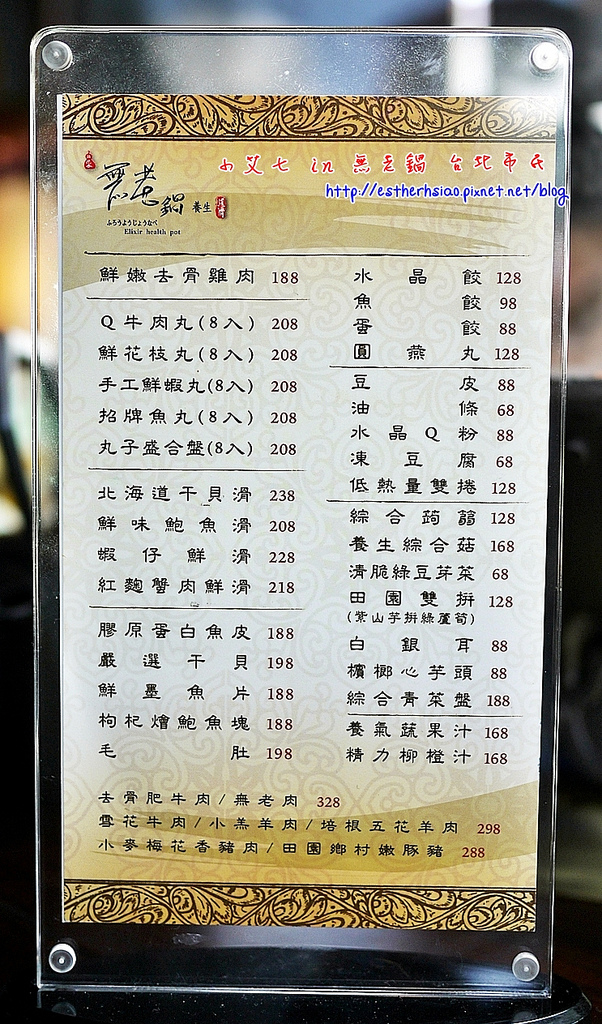 小艾七 in 無老鍋 台北市民
http://estherhsiao.pixnet.net/blog
無老鍋 養生
ふろうようじょうなべ
Elixir health pot
鮮嫩去骨雞肉 188
Q牛肉丸(8入) 208
鮮花枝丸(8入) 208
手工鮮蝦丸(8入) 208
招牌魚丸(8入) 208
丸子盛合盤(8入) 208
北海道干貝滑 238
鮮味鮑魚滑 208
蝦仔鮮滑 228
紅麴蟹肉鮮滑 218
膠原蛋白魚皮 188
嚴選干貝 198
鮮墨魚片 188
枸杞燴鮑魚塊 188
毛肚 198
水晶餃 128
魚餃 98
蛋餃 88
圓燕丸 128
豆皮 88
油條 68
水晶Q粉 88
凍豆腐 68
低熱量雙捲 128
綜合蒟蒻 128
養生綜合菇 168
清脆綠豆芽菜 68
田園雙拼 128
(紫山芋拼綠蘆筍)
白銀耳 88
檳榔心芋頭 88
綜合青菜盤 188
養氣蔬果汁 168
精力柳橙汁 168
去骨肥牛肉/無老肉 328
雪花牛肉/小羔羊肉/培根五花羊肉 298
小麥梅花香豬肉/田園鄉村嫩豚豬 288